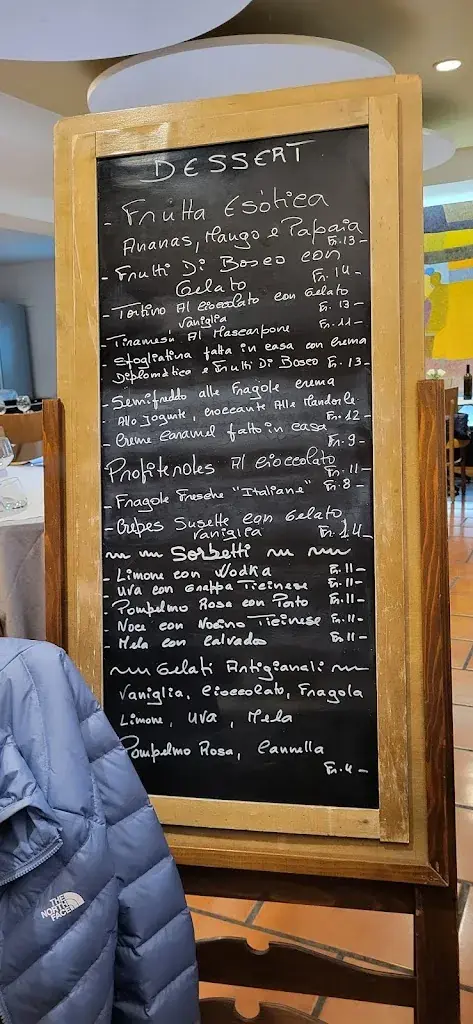 DESSERT
- Frutta Esòtica
Ananas, Mango e Papaia
Fr. 13 -
- Frutti Di Bosco con
Gelato Fr. 14 -
- Tortino Al Cioccolato con Gelato
Vaniglia Fr. 13 -
- Tiramesu Al Mascarpone Fr. 11 -
- Sfogliatina fatta in casa con crema
Diplomatica e Frutti Di Bosco Fr. 13 -
- Semifreddo alle Fragole crema
Allo Jogurte, croccante Alle Mandorle
Fr. 12 -
- Creme caramel fatto in casa
Fr. 9 -
Profiteroles Al Cioccolato
Fr. 11 -
- Fragole Fresche "Italiane" Fr. 8 -
- Crepes Susette con Gelato
Vaniglia Fr. 14 -
Sorbetti
- Limone con Wodka Fr. 11 -
- Uva con Grappa Ticinese Fr. 11 -
- Pompelmo Rosa con Porto Fr. 11 -
- Noce con Nocino Ticinese Fr. 11 -
- Mela con Calvados Fr. 11 -
Gelati Artigianali
Vaniglia, Cioccolato, Fragola
Limone, Uva, Mela
Pompelmo Rosa, Cannella
Fr. 4 -
THE
NORTH
FACE